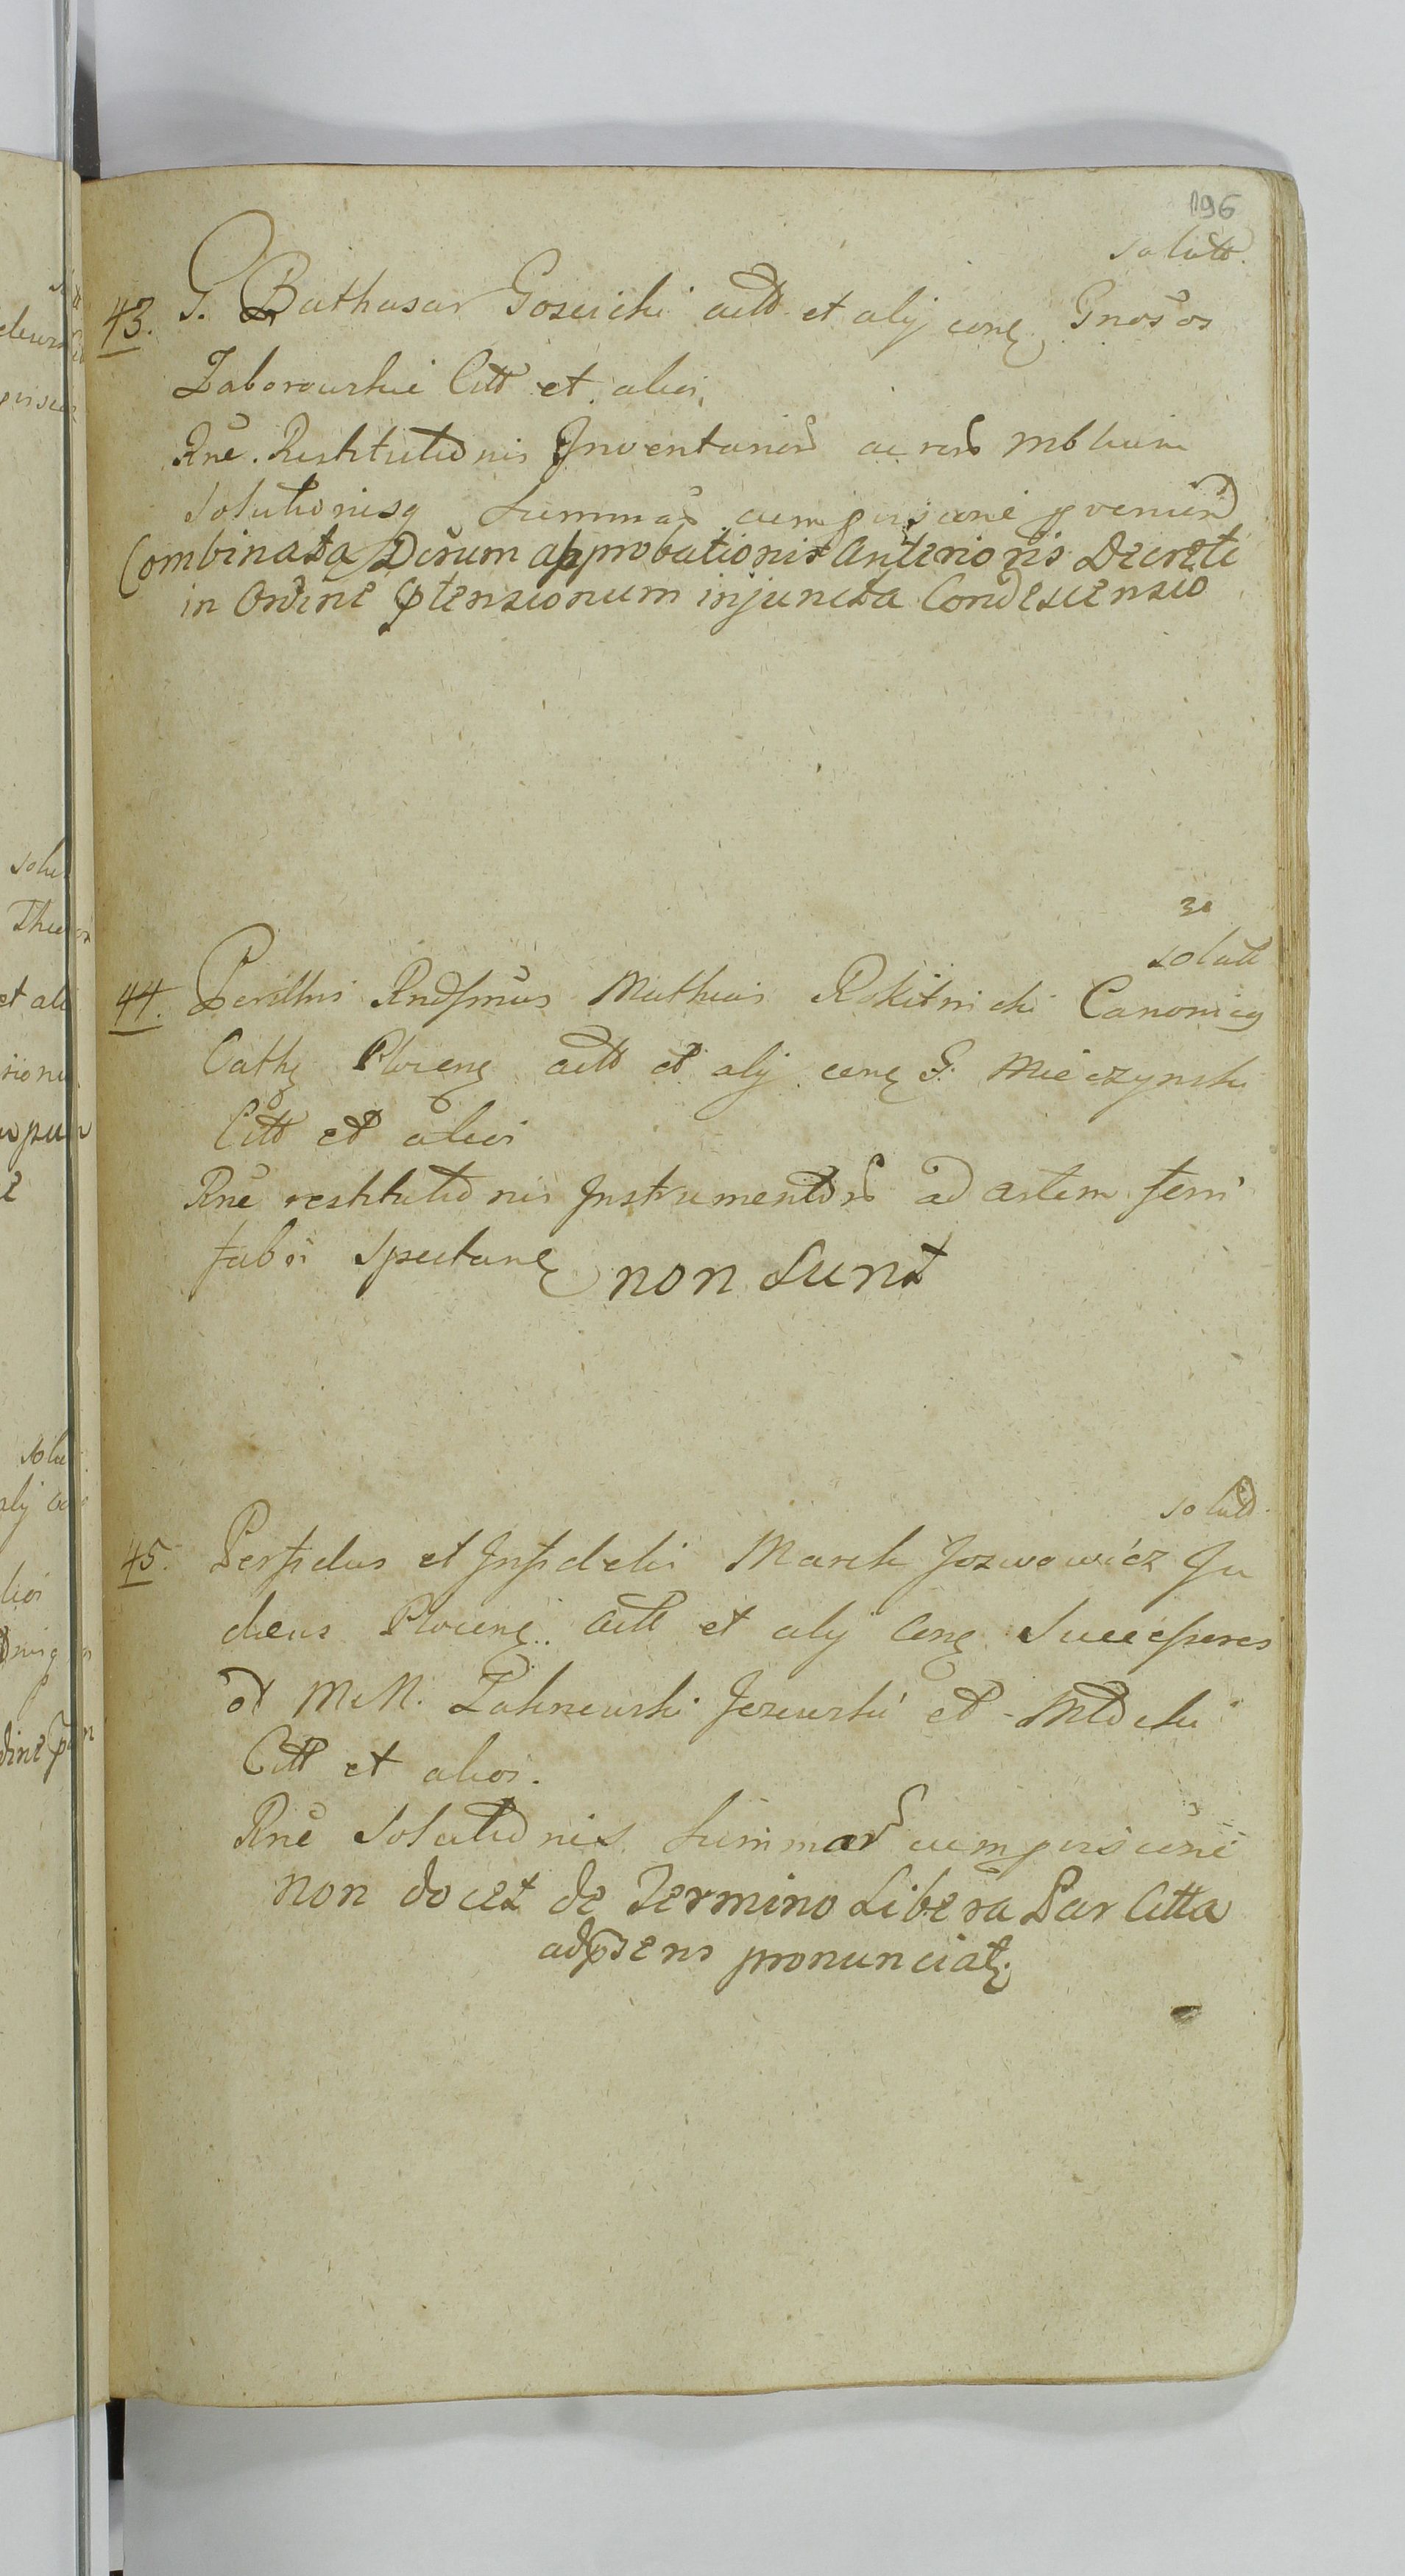 196
solutt.
43. G. Bathasar Goscicki actt et alij cone Gnosos
Zaborowskie Citt et alios,
Rne. Restitutionis Inventarior ac rer mblium
Solutionisq Summar cum pursione pvenien
Combinata Dirum approbationis anterioris Decreti
in Ordine Ptensionum injuncta Condescensio
30
solutt
44. Perillris Rndsmus Mathias Rokitnicki Canonicq
Cath Plocen actt et alij cone G. Mieczynski
Citt et alios
Rne restitutionis Instrumentor ad artem ferri
fabri Spectan non Sunt
solutt.
45. Perfidus et Infidelis Marek Jozwowicz Ju
daeus Plocen. actt et alij Cone Successores
et MM. Jezewski et
Citt et alios.
Rne Solutionis Summar cum pursione
non docet de Termino Libera Par Citta
adpsens pronunciat.